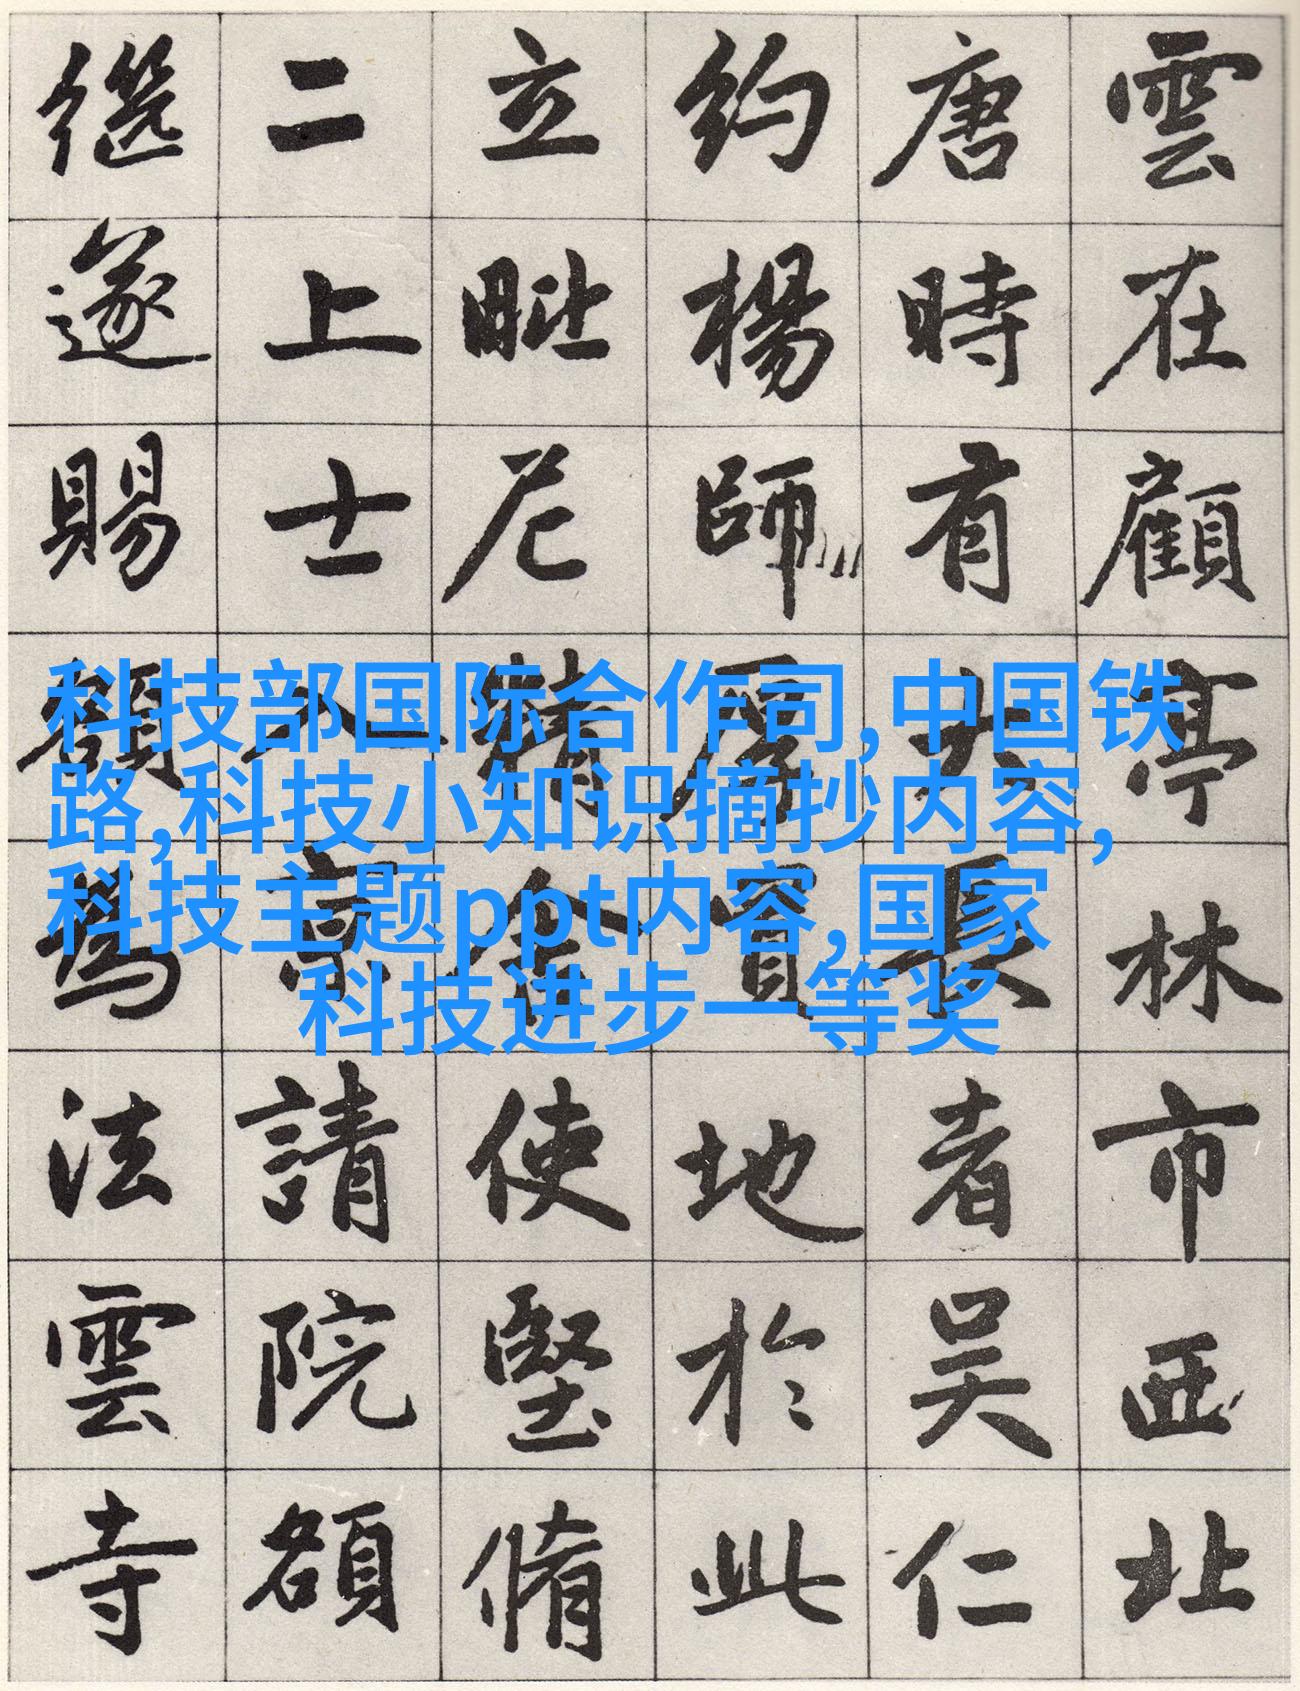 雲在顧亭林市西北
唐時有大長者吴仁
約楊師厚買地於此
立毗尼精舍使堅脩
二上士入京請院額
繼遂賜額爲法雲寺
科技部国际合作司,中国铁
路,科技小知识摘抄内容,
科技主题ppt内容,国家
科技进步一等奖